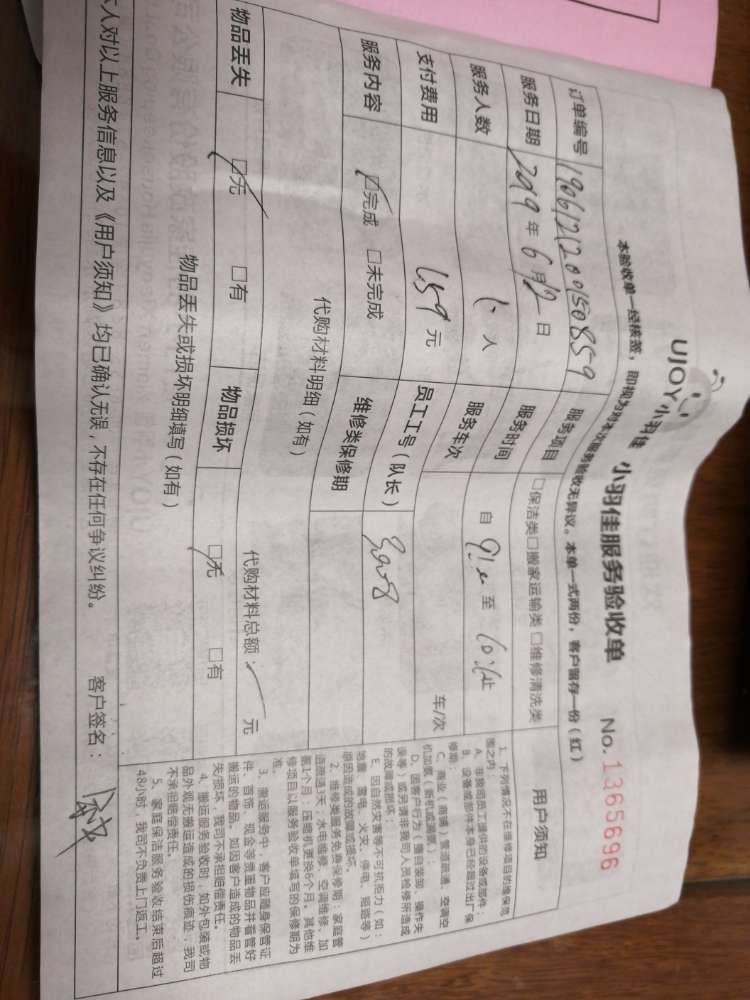 UJOY小羽佳 小羽佳服务验收单 No.1365696
本验收单一经核签，即视为对本次服务验收无异议。本单一式两份，客户留存一份（红）
订单编号 190612120015085９ 服务项目 □保洁类□搬家运输类□维修清洗类
服务日期 2019年6月12日 服务时间 自 至 止
服务人数 人 服务车次 车/次
支付费用 159元 员工工号（队长）
服务内容 □完成 □未完成 维修类保修期
代购材料明细（如有） 代购材料总额： 元
物品丢失 □无 □有 物品损坏 □无 □有
物品丢失或损坏明细填写（如有）
本人对以上服务信息以及《用户须知》均已确认无误，不存在任何争议纠纷。 客户签名：
用户须知
1、下列情况不在维修项目的维保范
围之内
A、非我司员工提供的设备或部件；
B、设备或部件本身已经超过出厂保
修期；
C、商业（商铺）管道疏通、空调空
机加氟（新机或漏氟）；
D、因客户行为（擅自装卸、操作失
误等）或另请非我司人员检修所造成
的故障或损坏；
E、因自然灾害等不可抗拒力（如：
地震、雷电、火灾、停电、短路等）
原因造成的故障或损坏。
2、维修类服务免费保修期：家庭管
道疏通7天；水电维修、空调维修、加
氟1个月；压缩机更换6个月。其他维
修项目以服务验收单填写的保修期为
准。
3、搬运服务中，客户应随身保管证
件、首饰、现金等贵重物品并看管好
搬运的物品。如因客户造成的物品丢
失/损坏，我司不承担赔偿责任。
4、搬运服务验收时，如外包装或物
品外观无搬运造成的损伤痕迹，我司
不承担赔偿责任。
5、家庭保洁服务验收结束后超过
48小时，我司不负责上门返工。